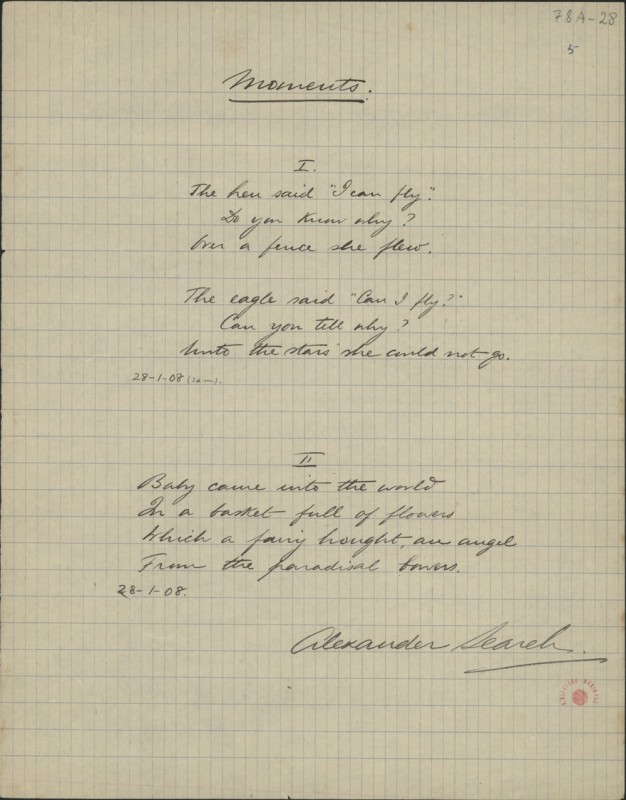 78A-28
5
Moments.
I.
The hen said "I can fly".
Do you know why?
Over a fence she flew.
The eagle said "Can I fly?"
Can you tell why?
Unto the stars she could not go.
28-1-08
II
Baby came into the world
In a basket full of flowers
Which a fairy bought, an angel
From the paradisal bowers.
28-1-08.
Alexander Search.